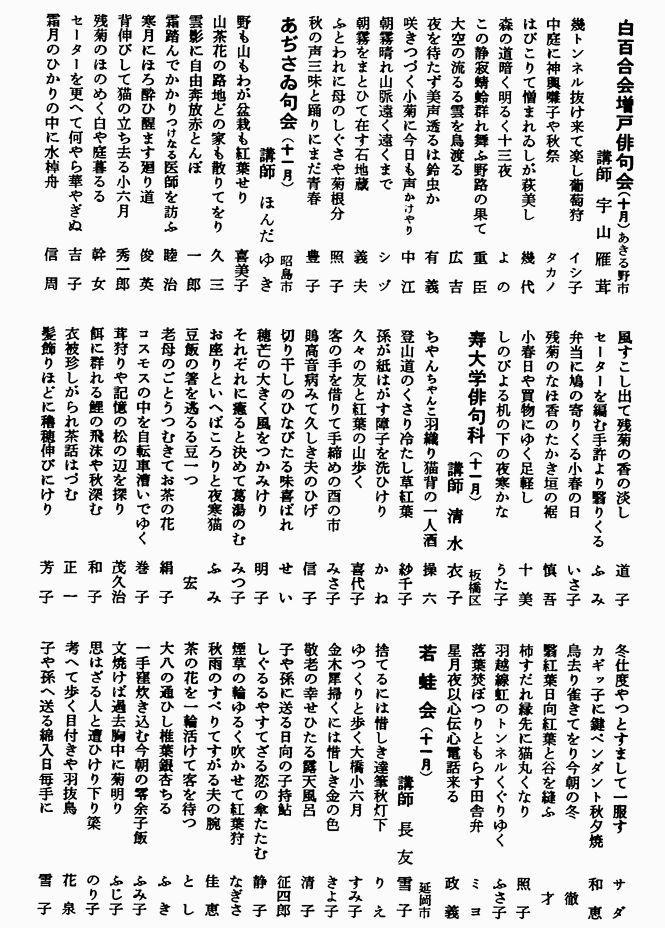 白百合会増戸俳句会（十月）あきる野市
講師 宇山雁茸
幾トンネル抜け来て楽し葡萄狩 イシ子
中庭に神輿囃子や秋祭 タカノ
はびこりて憎まれゐしが萩美し 幾代
森の道暗く明るく十三夜 よの
この静寂蜻蛉群れ舞ふ野路の果て 重臣
大空の流るる雲を鳥渡る 広吉
夜を待たず美声透るは鈴虫か 有義
咲きつづく小菊に今日も声かけやり 中江
朝霧晴れ山脈遠く遠くまで シヅ
朝霧をまとひて在す石地蔵 義夫
ふとわれに母のしぐさや菊根分 照子
秋の声三味と踊りにまだ青春 豊子
あぢさゐ句会（十一月） 昭島市
講師 ほんだゆき
野も山もわが盆栽も紅葉せり 喜美子
山茶花の路地どの家も散りてをり 久三
雲影に自由奔放赤とんぼ 一郎
霜踏んでかかりつけなる医師を訪ふ 睦治
寒月にほろ酔ひ醒ます廻り道 俊英
背伸びして猫の立ち去る小六月 秀一郎
残菊のほのめく白や庭暮るる 幹女
セーターを更へて何やら華やぎぬ 吉子
霜月のひかりの中に水棹舟 信周
風すこし出て残菊の香の淡し 道子
セーターを編む手許より翳りくる ふみ
弁当に鳩の寄りくる小春の日 いさ子
残菊のなほ香のたかき垣の裾 慎吾
小春日や買物にゆく足軽し 十美
しのびよる机の下の夜寒かな うた子
寿大学俳句科（十一月） 板橋区
講師 清水衣子
ちゃんちゃんこ羽織り猫背の一人酒 操六
登山道のくさり冷たし草紅葉 紗千子
孫が紙はがす障子を洗ひけり かね
久々の友と紅葉の山歩く 喜代子
客の手を借りて手締めの酉の市 みさ子
鵙高音病みて久しき夫のひげ 信子
切り干しのひなびたる味喜ばれ せい
穂芒の大きく風をつかみけり 明子
それぞれに癒ると決めて葛湯のむ みつ子
お座りといへばころりと夜寒猫 ふみ
豆飯の箸を逃るる豆一つ 宏
老母のごとうつむきてお茶の花 絹子
コスモスの中を自転車漕いでゆく 巻子
茸狩りや記憶の松の辺を探り 茂久治
餌に群れる鯉の飛沫や秋深む 和子
衣被珍しがられ茶話はづむ 正一
髪飾りほどに穭穂伸びにけり 芳子
冬仕度やつとすまして一服す サダ
カギッ子に鍵ペンダント秋夕焼 和恵
鳥去り雀きてをり今朝の冬 徹
翳紅葉日向紅葉と谷を縫ふ 才
柿すだれ縁先に猫丸くなり 照子
羽越線虹のトンネルくぐりゆく ふさ子
落葉焚ぽつりともらす田舎弁 ミヨ
星月夜以心伝心電話来る 政義
若蛙会（十一月） 延岡市
講師 長友雪子
捨てるには惜しき達筆秋灯下 りえ
ゆつくりと歩く大橋小六月 すみ子
金木犀掃くには惜しき金の色 きよ子
敬老の幸せひたる露天風呂 清子
子や孫に送る日向の子持鮎 征四郎
しぐるるやすてざる恋の傘たたむ 静子
煙草の輪ゆるく吹かせて紅葉狩 なぎさ
秋雨のすべりてすがる夫の腕 佳恵
茶の花を一輪活けて客を待つ とし
大八の通ひし椎葉銀杏ちる ふき
一手窪炊き込む今朝の零余子飯 ふみ子
文焼けば過去胸中に菊明り ふじ子
思はざる人と遭ひけり下り簗 のり子
考へて歩く日付きや羽抜鳥 花泉
子や孫へ送る綿入日毎手に 雪子